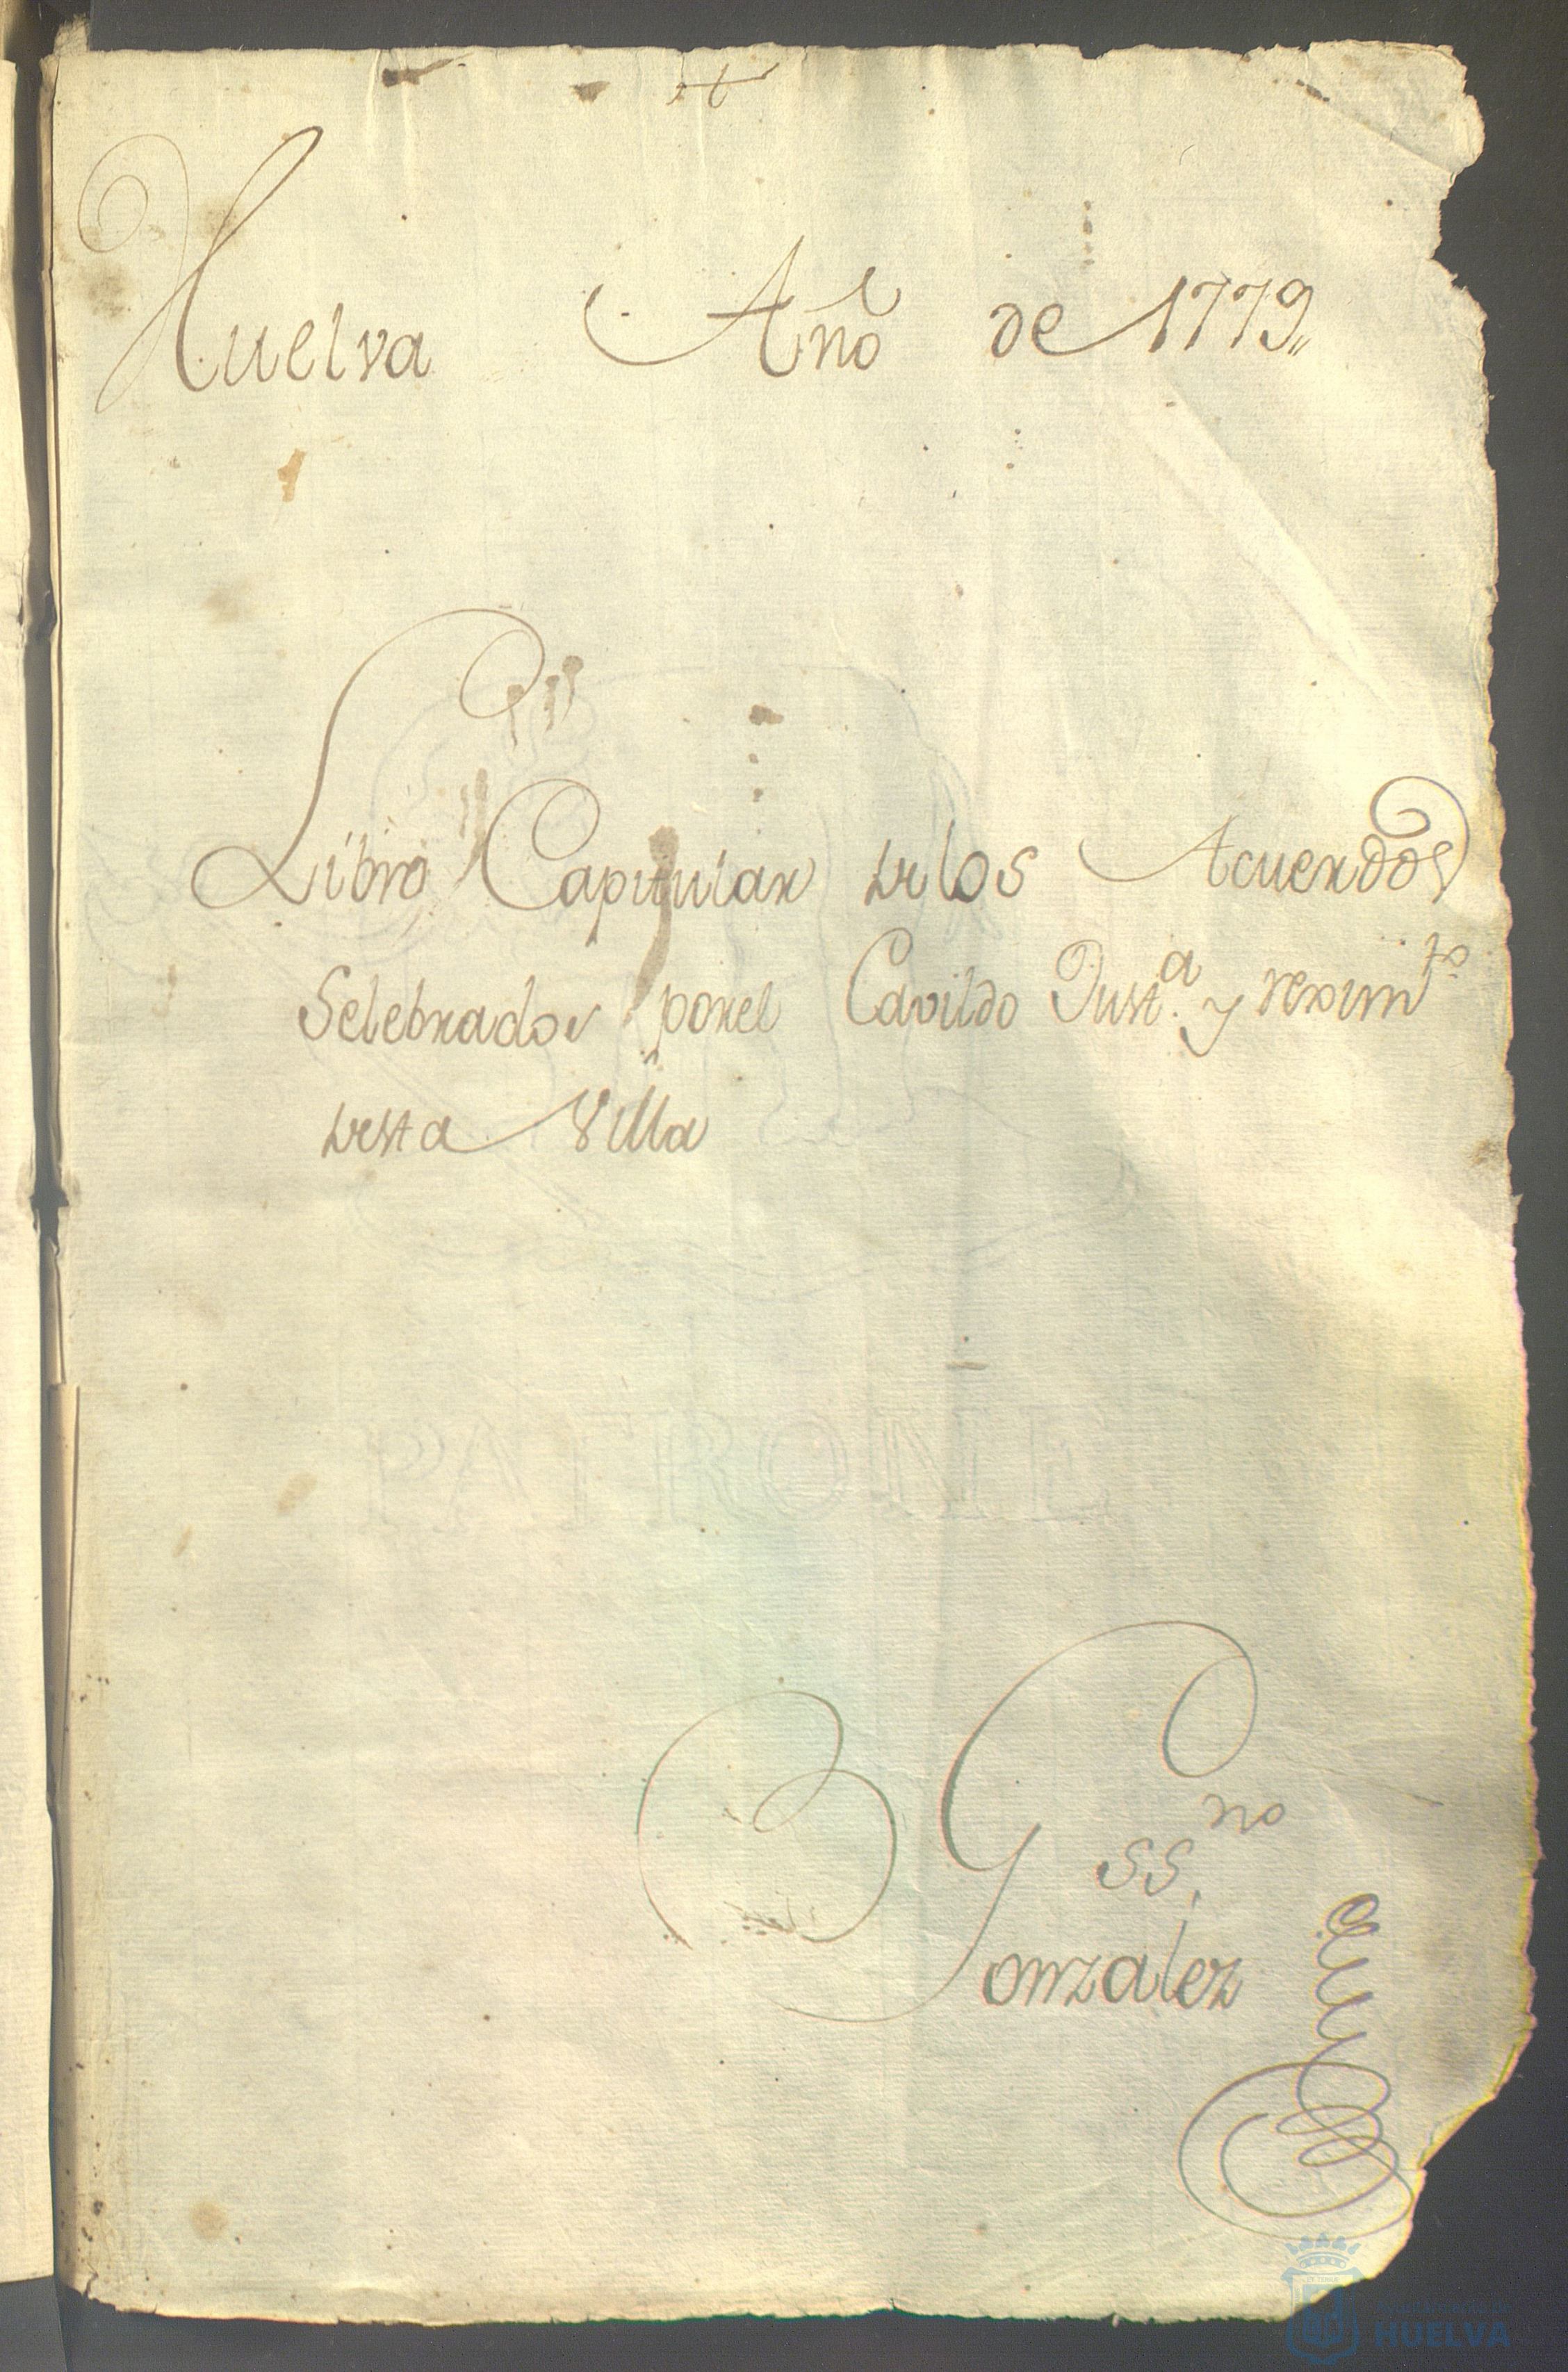 Huelva Año de 1779,,
Libro Capitular de los Acuerdos
Selebrados por el Cavildo Just.ª y reximto
desta Villa
ssno
Gonzalez
PATRONE
HUELVA